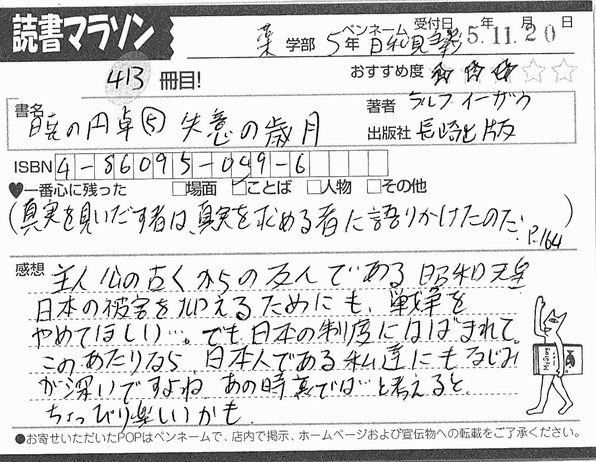 読書マラソン
薬 学部 5年 ペンネーム 日和見 受付日 5年11月20日
413冊目! おすすめ度 ★★★☆☆
書名 暁の円卓⑤ 失意の歳月
著者 ラルフ イーザウ
出版社 長崎出版
ISBN 4-86095-049-6
♥一番心に残った □場面 ☑ことば □人物 □その他
(真実を見いだす者は、真実を求める者に語りかけたのだ。) P.164
感想 主人公の古くからの友人である昭和天皇
日本の被害を抑えるためにも、戦争を
やめてほしい…。でも日本の制度にはばまれて。
このあたりなら、日本人である私達にもなじみ
が深いですよね あの時裏では…と考えると
ちょっぴり楽しいかも
●お寄せいただいたPOPはペンネームで、店内で掲示、ホームページおよび宣伝物への転載をご了承ください。